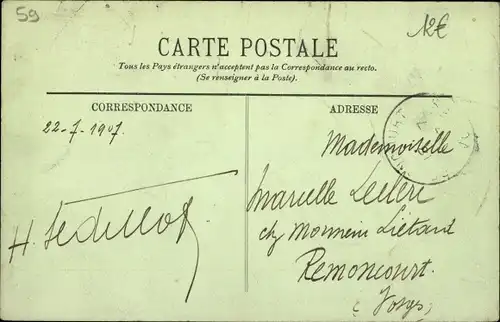 59
12€
CARTE POSTALE
Tous les Pays étrangers n'acceptent pas la Correspondance au recto.
(Se renseigner à la Poste).
CORRESPONDANCE
ADRESSE
22-7-1907.
H. Sedillot
Mademoiselle
Marcelle Leclère
chz Monsieur Liétard
Remoncourt.
(Vosges)